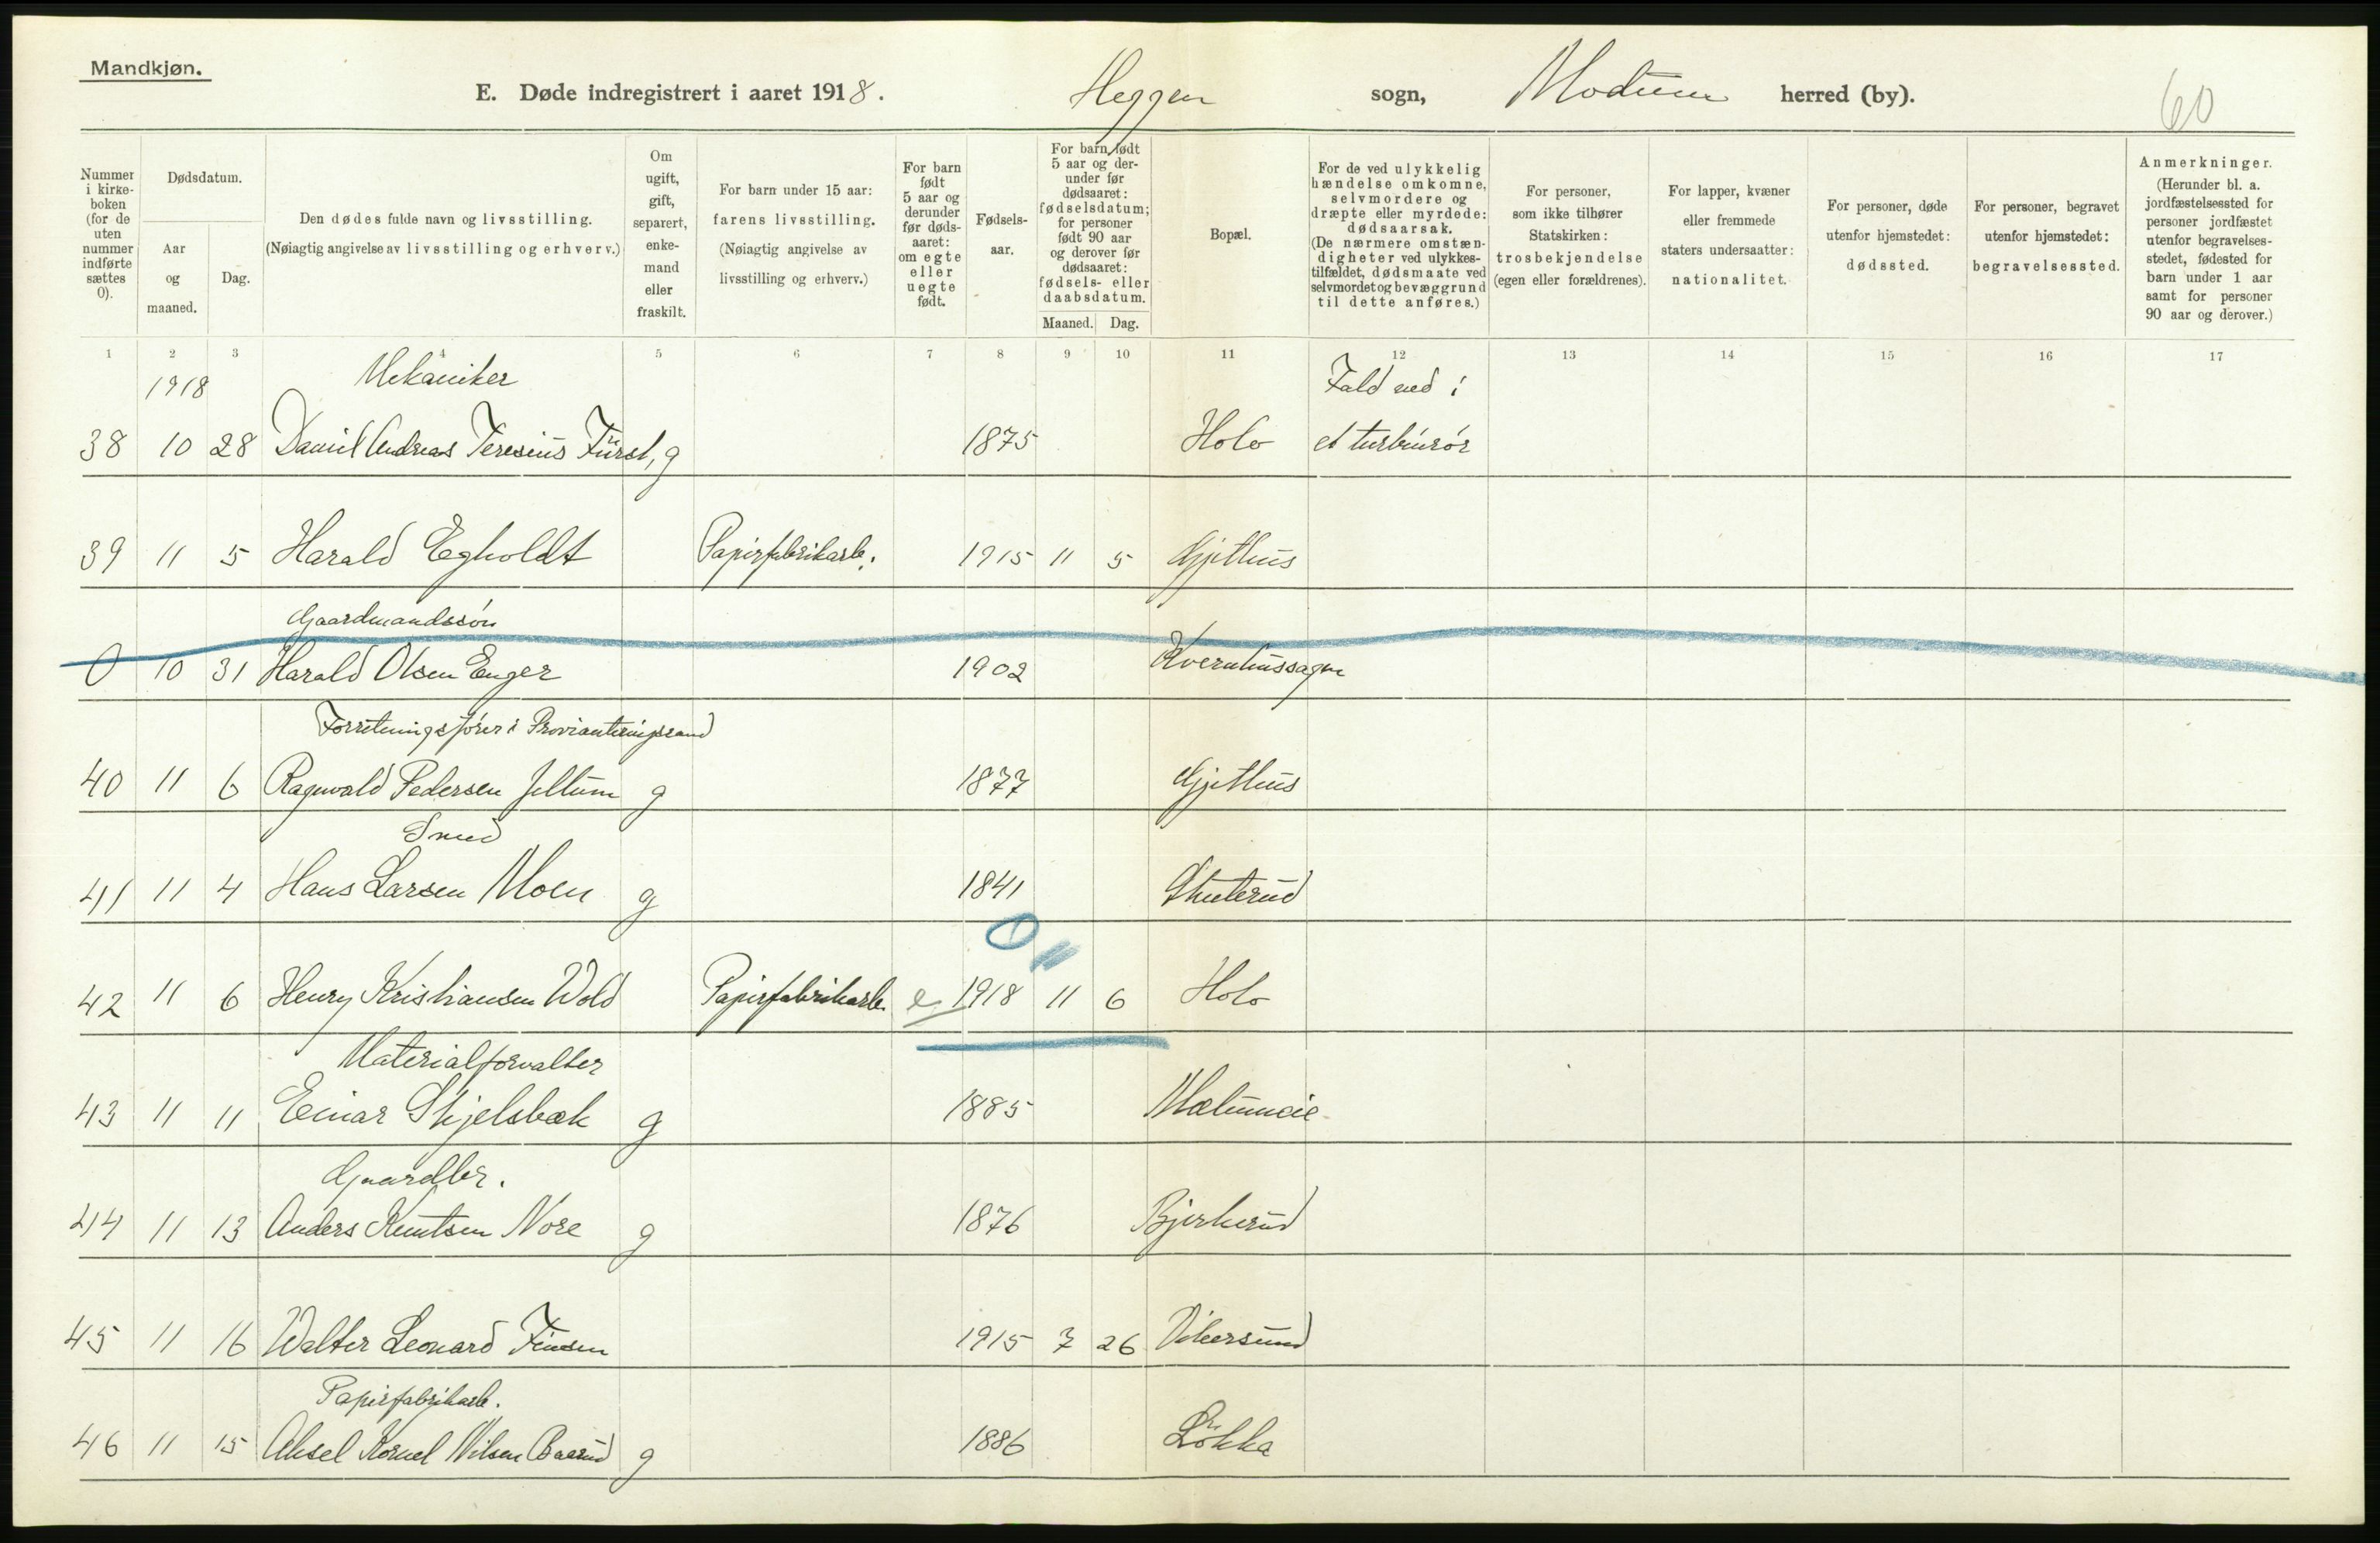 Mandkjøn.
E. Døde indregistrert i aaret 1918. Heggen sogn, Modum herred (by). 60
Nummer i kirke- boken (for de uten nummer indførte sættes 0).
Dødsdatum.
Aar og maaned.
Dag.
Den dødes fulde navn og livsstilling.
(Nøiagtig angivelse av livsstilling og erhverv.)
Om ugift, gift, separert, enke- mand eller fraskilt.
For barn under 15 aar: farens livsstilling.
(Nøiagtig angivelse av livsstilling og erhverv.)
For barn født 5 aar og derunder før døds- aaret: om egte eller uegte født.
Fødsels- aar.
For barn født 5 aar og der- under før dødsaaret: fødselsdatum; for personer født 90 aar og derover før dødsaaret: fødsels- eller daabsdatum.
Maaned. Dag.
Bopæl.
For de ved ulykkelig hændelse omkomne, selvmordere og dræpte eller myrdede: dødsaarsak.
(De nærmere omstæn- digheter ved ulykkes- tilfældet, dødsmaate ved selvmordet og bevæggrund til dette anføres.)
For personer, som ikke tilhører Statskirken: trosbekjendelse (egen eller forældrenes).
For lapper, kvæner eller fremmede staters undersaatter: nationalitet.
For personer, døde utenfor hjemstedet: dødssted.
For personer, begravet utenfor hjemstedet: begravelsessted.
Anmerkninger.
(Herunder bl. a. jordfæstelsessted for personer jordfæstet utenfor begravelses- stedet, fødested for barn under 1 aar samt for personer 90 aar og derover.)
1 2 3 4 5 6 7 8 9 10 11 12 13 14 15 16 17
1918 Mekaniker Fald ned i
38 10 28 Daniel Andreas Teresius Fürst, g 1875 Holo et turbinrör
39 11 5 Harald Egholdt Papirfabrikarb. 1915 11 5 Gjithus
Gaardmandssön
0 10 31 Harald Olsen Enger 1902 Kvernhussagen
Forretningsförer i Provianteringsraad
40 11 6 Ragnvald Pedersen Jellum g 1877 Gjithus
Smed
41 11 4 Hans Larsen Moen g 1841 Skuterud
0 11
42 11 6 Henry Kristiansen Wold Papirfabrikarb. e 1918 11 6 Holo
Materialforvalter
43 11 11 Einar Skjelsbæk g 1885 Mælumeie
Gaardbr.
44 11 13 Anders Knutsen Nore g 1876 Bjerkerud
45 11 16 Walter Leonard Finsen 1915 7 26 Vikersund
Papirfabrikarb.
46 11 15 Aksel Kornel Nilsen Baarud g 1886 Lökka